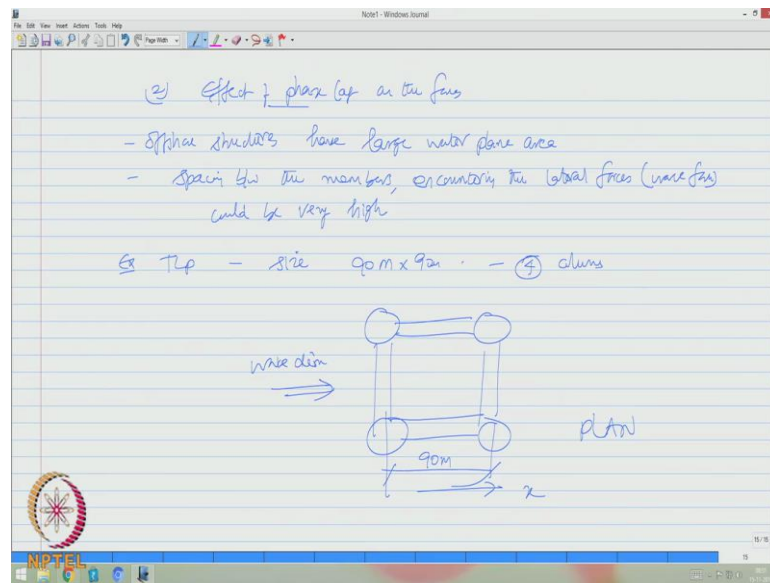 Note1 - Windows Journal
File Edit View Insert Actions Tools Help
Page Width
(2) Effect of phase lag on the forces
- offshore structures have large water plane area
- spacing b/w the members, encountering the lateral forces (wave forces)
could be very high
Ex TLP - size 90m x 90m - 4 columns
wave dirn
PLAN
90m
x
NPTEL
15/16
15